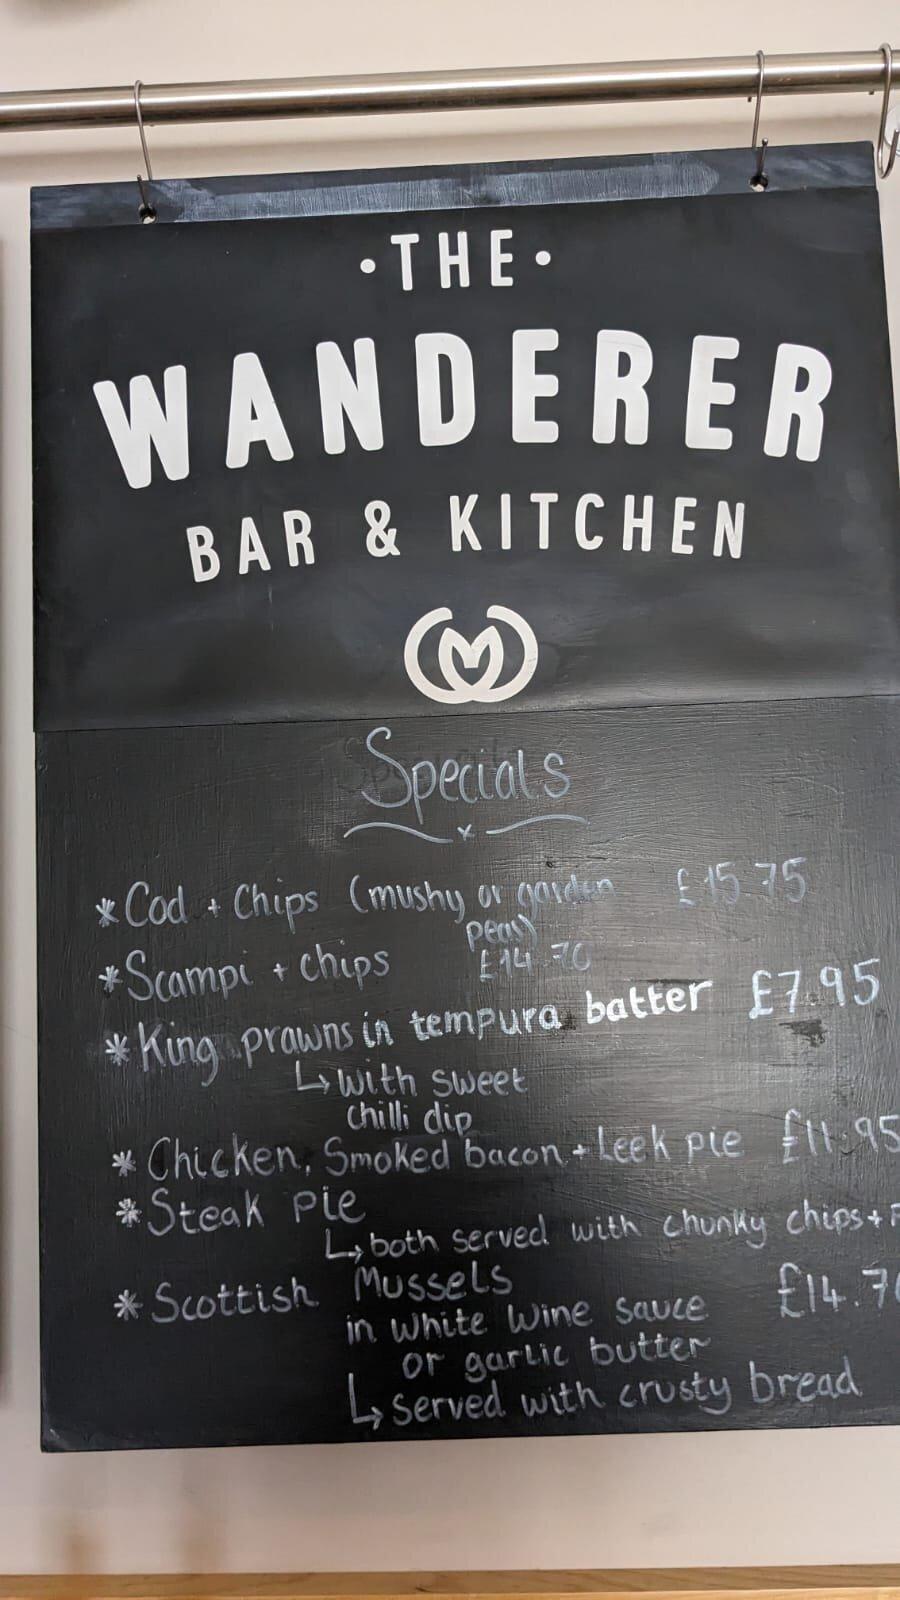 ·THE·
WANDERER
BAR & KITCHEN
Specials
*Cod + Chips (mushy or garden £15.75
peas)
*Scampi + chips £14.70
*King prawns in tempura batter £7.95
↳ with sweet
chilli dip
* Chicken, Smoked bacon + Leek pie £11.95
*Steak pie
↳ both served with chunky chips +
*Scottish Mussels £14.70
in white wine sauce
or garlic butter
↳ served with crusty bread